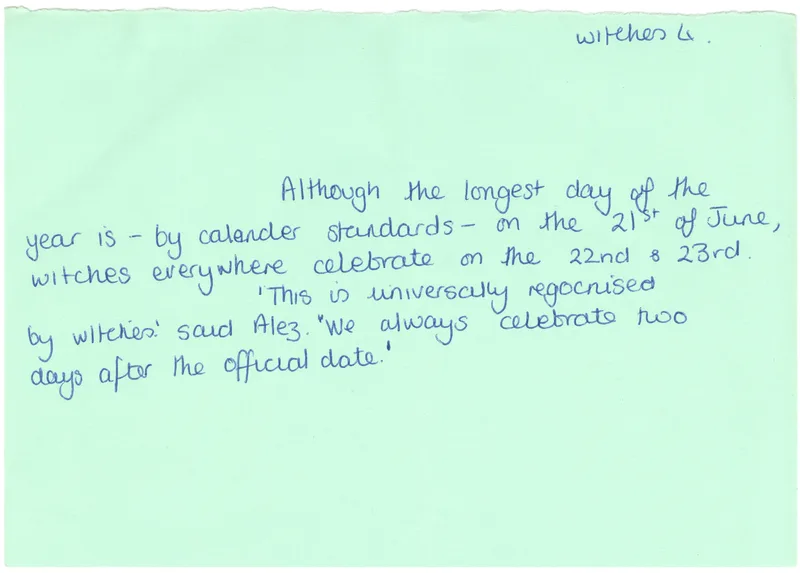 witches 4.
Although the longest day of the
year is - by calander standards - on the 21st of June,
witches everywhere celebrate on the 22nd & 23rd.
'This is universally regocnised
by witches.' said Alez. 'We always celebrate two
days after the official date.'